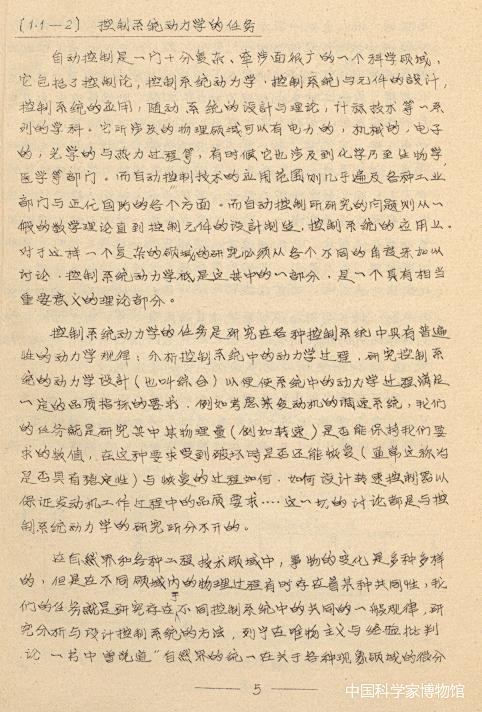 (1.1-2) 控制系统动力学的任务
自动控制是一门十分复杂、牵涉面很广的一个科学领域,
它包括了控制论,控制系统动力学,控制系统与元件的设计,
控制系统的应用,随动系统的设计与理论,计算技术等一系
列的学科。它所涉及的物理领域可以有电力的,机械的,电子
的,光学的与热力过程等,有时候它也涉及到化学乃至生物学,
医学等部门。而自动控制技术的应用范围则几乎遍及各种工业
部门与近代国防的各个方面。而自动控制所研究的问题则从一
般的数学理论直到控制元件的设计制造,控制系统的应用止。
对于这样一个复杂的领域的研究必须从各个不同的角度来加以
讨论。控制系统动力学祗是这其中的一部分,是一个具有相当
重要意义的理论部分。
控制系统动力学的任务是研究在各种控制系统中具有普遍
性的动力学规律:分析控制系统中的动力学过程,研究控制系
统的动力学设计(也叫综合)以便使系统中的动力学过程满足
一定的品质指标的要求。例如考虑某发动机的调速系统,我们
的任务就是研究其中某物理量(例如转速)是否能保持我们要
求的数值,在这种要求受到破坏时是否还能恢复(通常这称为
是否具有稳定性)与恢复的过程如何。如何设计转速控制器以
保证发动机工作过程中的品质要求……这一切的讨论都是与控
制系统动力学的研究所分不开的。
在自然界和各种工程技术领域中,事物的变化是多种多样
的,但是在不同领域内的物理过程有时存在着某种共同性,我
们的任务就是研究存在于不同控制系统中的共同的一般规律,研
究分析与设计控制系统的方法,列宁在唯物主义与经验批判
论一书中曾说道"自然界的统一在关于各种现象领域的微分
5
中国科学家博物馆